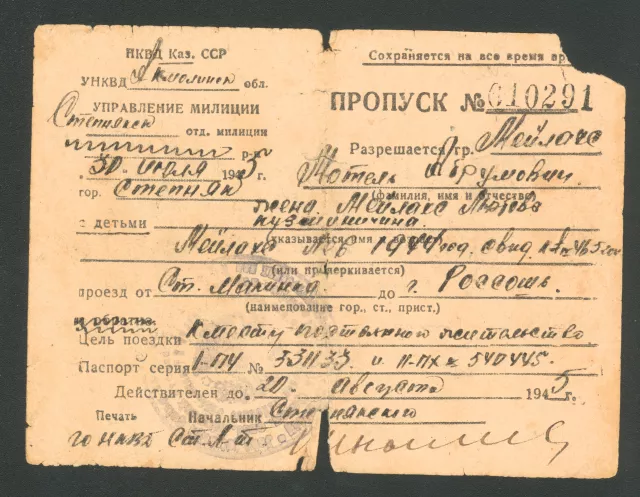 НКВД Каз. ССР
Сохраняется на все время
УНКВД Акмолинск обл.
УПРАВЛЕНИЕ МИЛИЦИИ
ПРОПУСК № 010291
Степняк отд. милиции
Разрешается гр. Мейлахс
30 июля 1945 г.
Мотель Абрумович
гор. Степняк
(фамилия, имя и отчество)
с детьми
жена Мейлахс
(указывается имя
Мейлахс 1944 год. свид.
(или придерживается)
проезд от Ст. Макинка до г. Россошь
(наименование гор., ст., прист.)
и обратно
Цель поездки К месту постоянного жительства
Паспорт серия I-ПЧ № 331133 и II-ПХ № 540445.
Действителен до 20 августа 1945 г.
Печать Начальник Степнякского
го НКВД